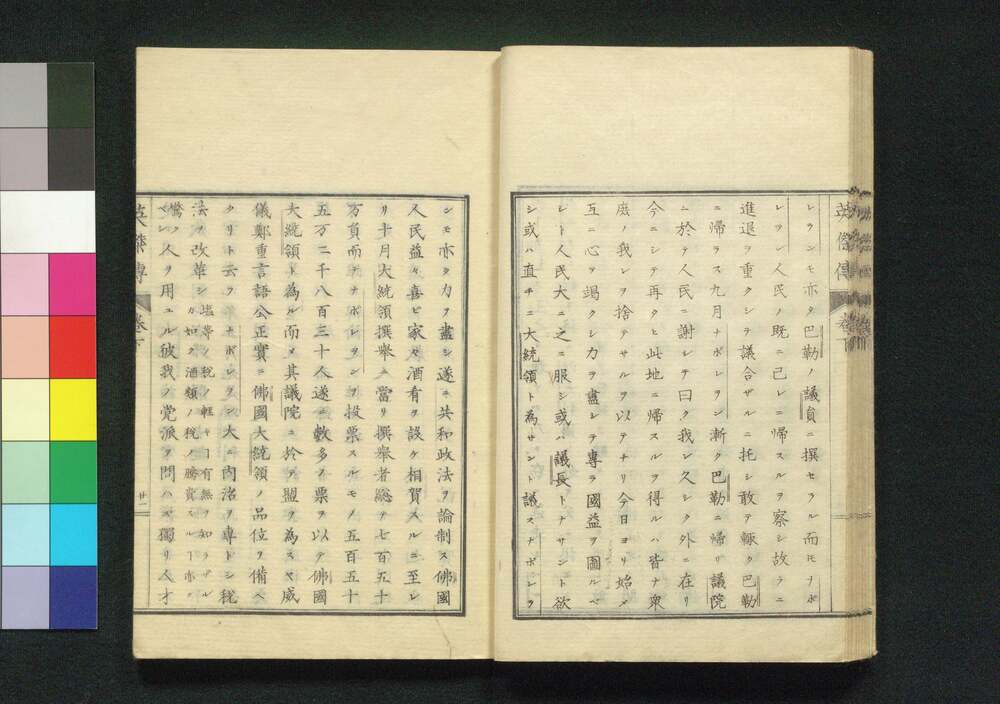 英傑傳 卷下
レランモ亦タ巴勒ノ議員ニ撰セラル而モナポ
レヲン人民ノ既ニ己レニ帰スルヲ察シ故ラニ
進退ヲ重クシテ議合ザルニ托シ敢テ輙ク巴勒
ニ帰ラス九月ナポレヲン漸ク巴勒ニ帰リ議院
ニ於テ人民ニ謝レテ曰ク我レ久シク外ニ在リ
今ニシテ再タヒ此地ニ帰スルヲ得ルハ皆ナ衆
庶ノ我レヲ捨テサルヲ以テナリ今日ヨリ始メ
互ニ心ヲ竭クシ力ヲ盡レテ專ラ國益ヲ圖ルベ
レト人民大ニ之ニ服シ或ハ議長トナサント欲
シ或ハ直チニ大統領ト為サント議スナポレヲ
シモ亦タ力ヲ盡シ遂ニ共和政法ヲ論制ス佛國
人民益々喜ビ家々酒肴ヲ設ケ相賀スルニ至レ
リ十月大統領撰擧ニ當リ撰擧者總テ七百五十
万員而テナポレヲンヲ投票スルモノ五百五十
五万二千八百三十人遂ニ數多ノ票ヲ以テ佛國
大統領ト為ル而メ其議院ニ於テ盟ヲ為スヤ威
儀鄭重言語公正實ニ佛國大統領ノ品位ヲ備ヘ
タリト云フナポレヲン大ニ内治ヲ專トシ税
法ヲ改革シ塩等ノ税ノ輕キヿ有無ヲ知ラザル
カ如ク酒類ノ税ノ騰貴スル下亦タ
驚クベシ人ヲ用ユル彼我ノ党派ヲ問ハズ獨リ人才
英傑傳 卷下 廿一